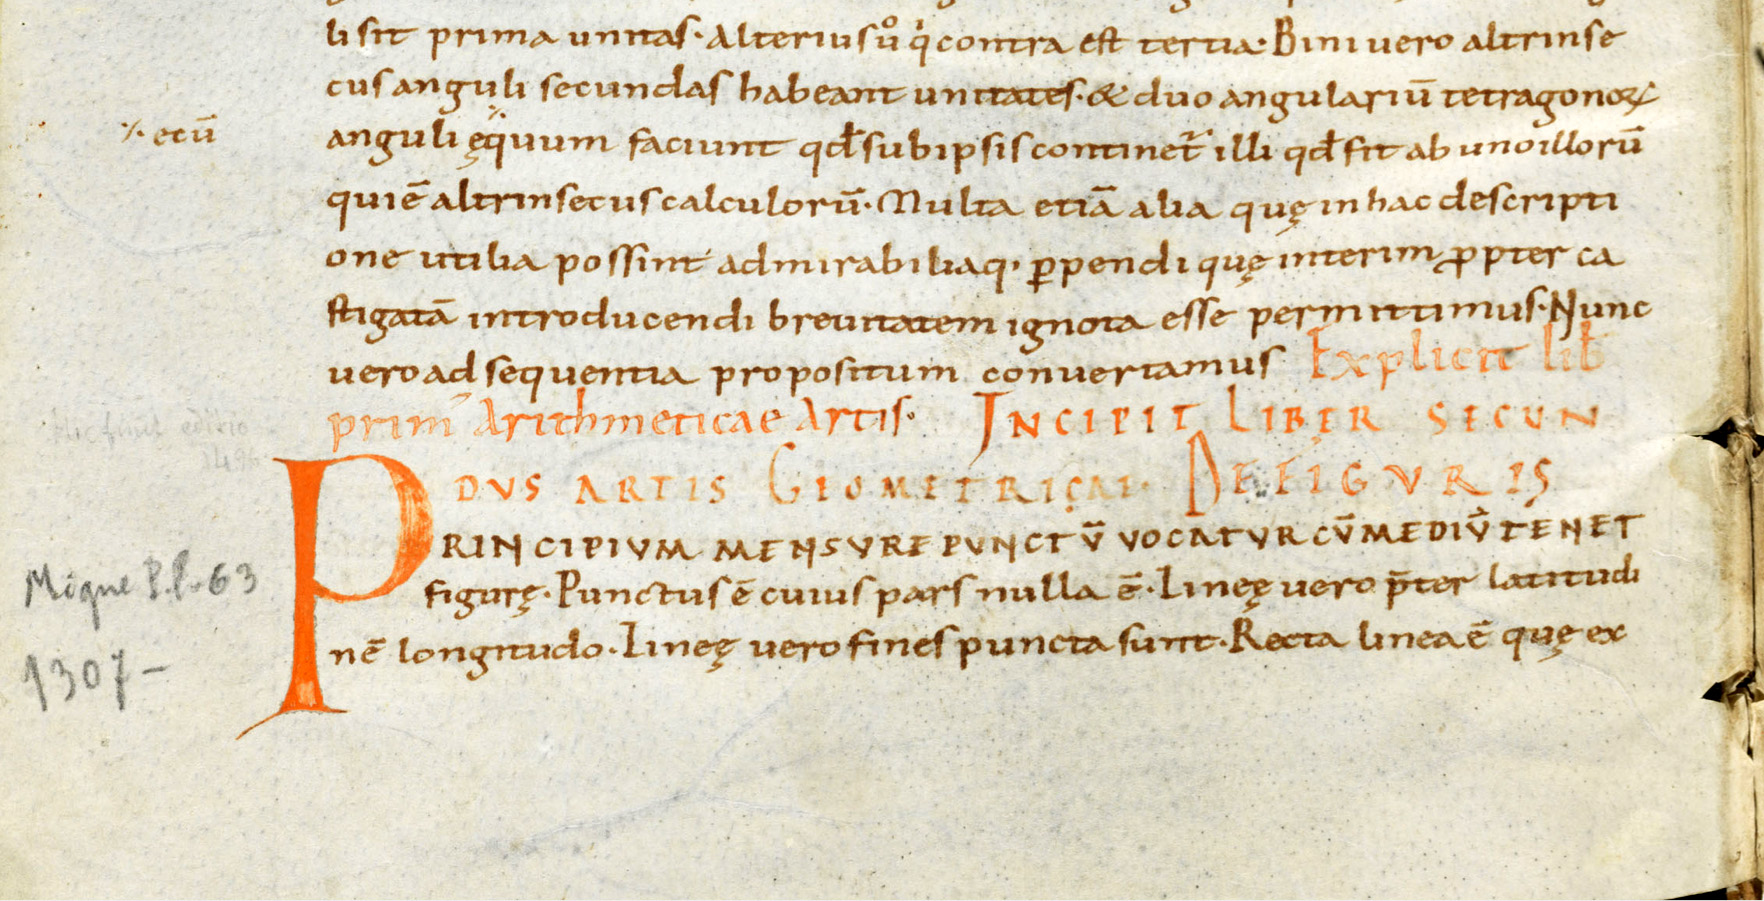 li sit prima unitas· Alterius ů qͥ contra est tertia· Bini uero altrinse
cus anguli secundas habeant unitates· & duo angulariū tetragonoꝝ
⁒ ecū
anguli ęq̇uum faciunt qd̄ sub ipsis continet̄ illi qd̄ fit ab uno illorū
qui ē altrinsecus calculorū· Multa etiā alia quę in hac descripti
one utilia possint admirabiliaq· ꝑpendi quę interim ꝓpter ca
stigatā introducendi breuitatem ignota esse permittimus· Nunc
uero ad sequentia propositum conuertamus Explicit lib̄
primꝰ Arithmeticae Artis· INCIPIT LIBER SECUN
Hic finit editio
1496
DVS ARTIS GEOMETRICAE· DE FIGVRIS
PRINCIPIVM MENSVRE PVNCTV̄ VOCATVR CV̄ MEDIV̄ TENET
Migne P.l. 63
figurę· Punctus ē cuius pars nulla ē· Lineę uero p̄ter latitudi
nē longitudo· Lineę uero fines puncta sunt· Recta linea ē quę ex
1307 –